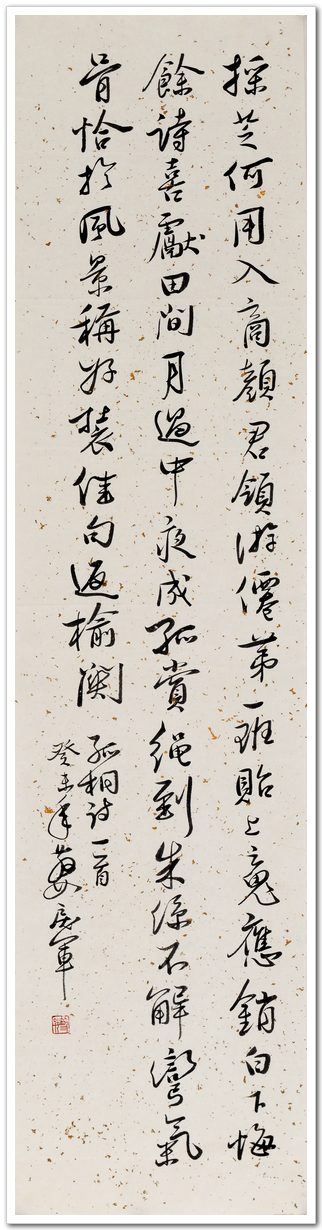 採芝何用入商顏君領游僊第一班貽上䰟應銷白下悔
餘詩喜獻田間月過中夜成孤賞繩到朱絲不解彎氣
骨恰於風景稱好裝佳句返榆關
孤桐詩一首
癸未年